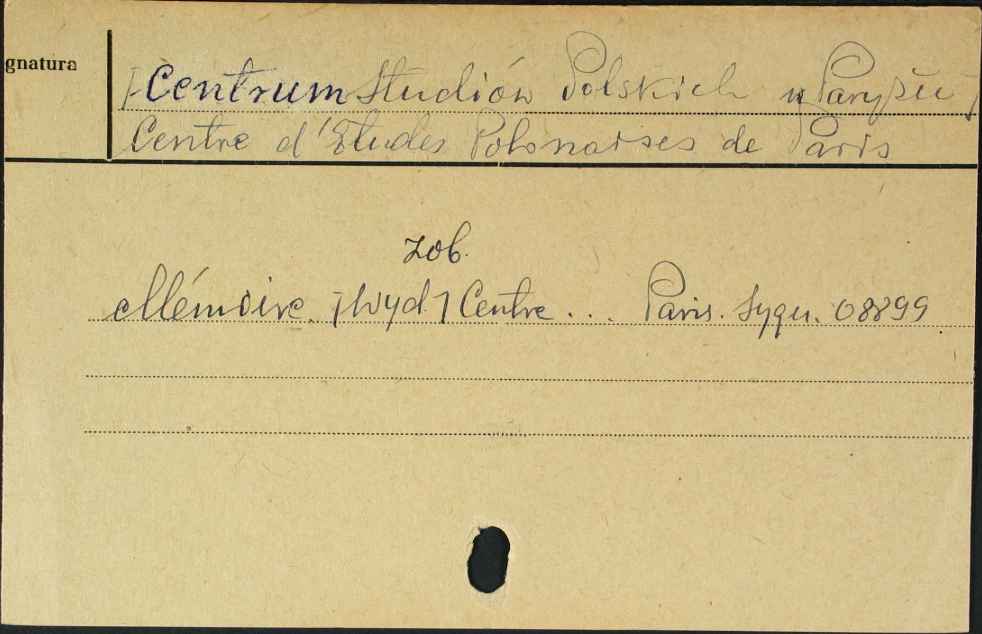 gnatura
[Centrum Studiów Polskich w Paryżu]
Centre d'Etudes Polonaises de Paris
zob.
Mémoire. [Wyd.] Centre... Paris. Sygn. 08899